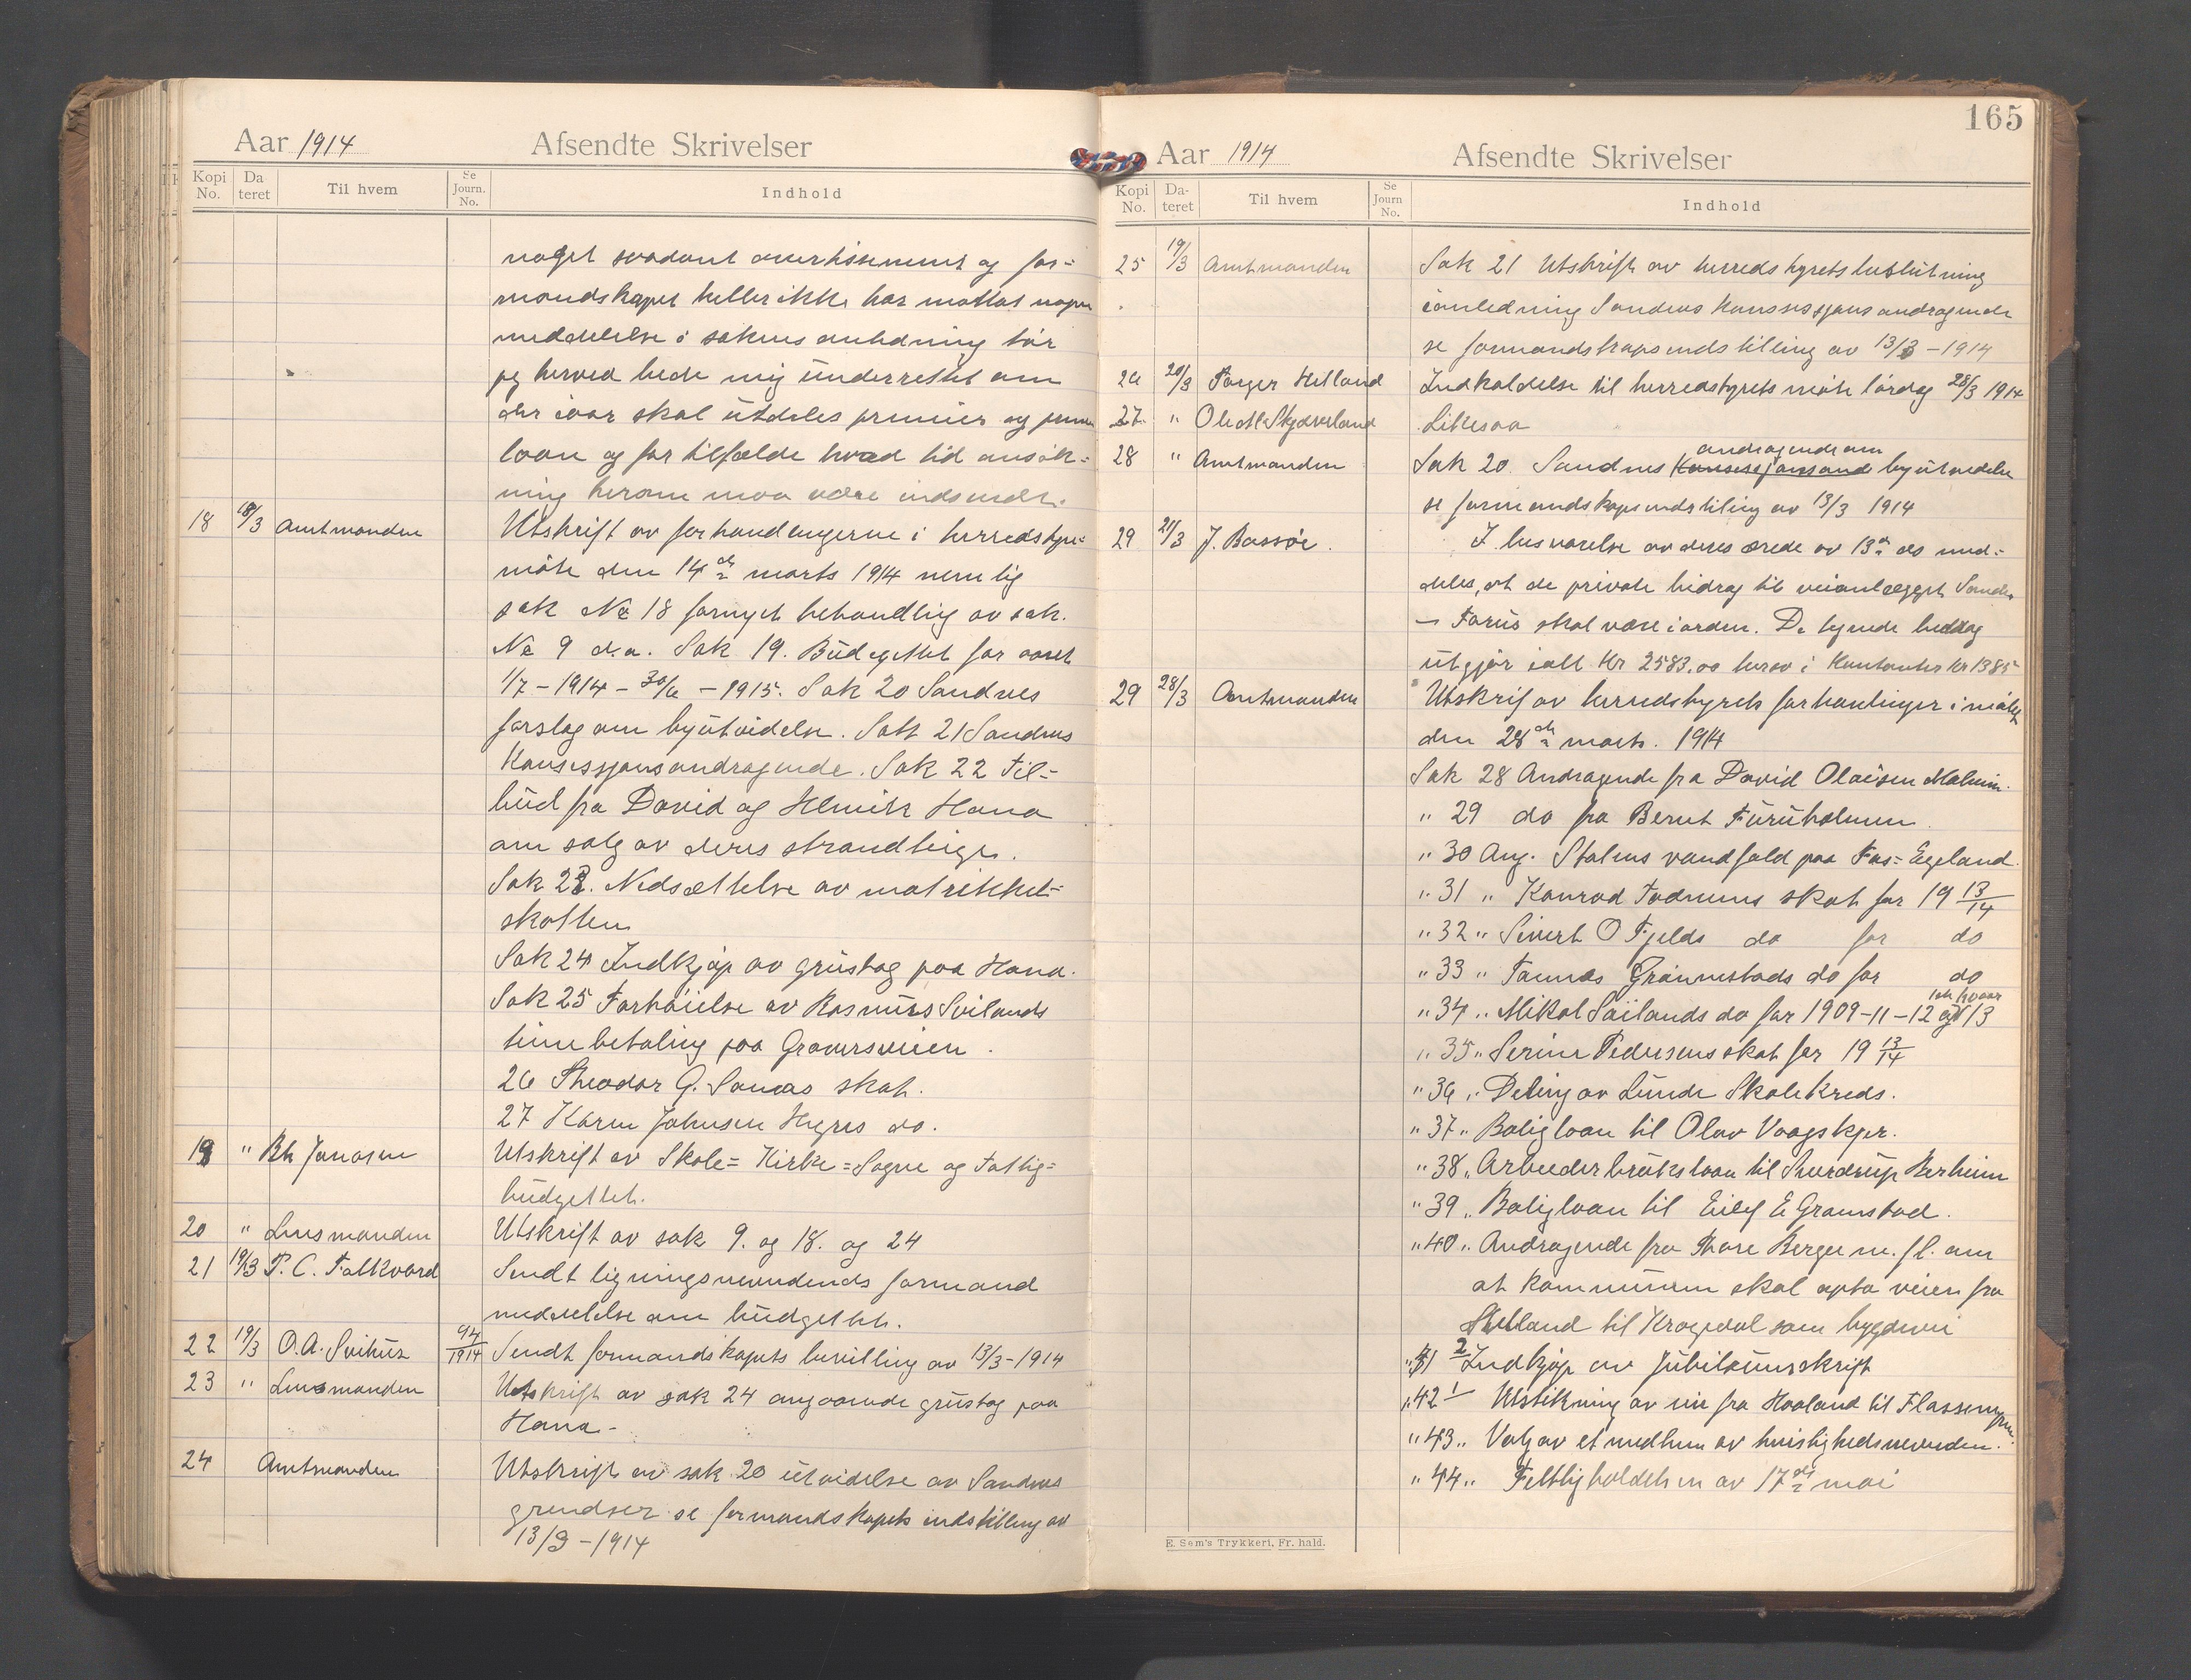 Aar 1914 Afsendte Skrivelser
Kopi No. Da teret Til hvem Se Journ. No. Indhold
noget saadant avertissement og for=
mandskapet heller ikke har mottat nogen
meddelelse i sakens anledning tør
jeg herved bede mig underrettet om
der iaar skal utdeles premier og
laan og for tilfælde hvad tid ansøk=
ning herom maa være indsendt.
18 18/3 Amtmanden Utskrift av forhandlingerne i herredstyre=
møte den 14de marts 1914 nemlig
sak No 18 fornyet behandlig av sak.
No 9 d.a. Sak 19. Budgettet for aaret
1/7 - 1914 - 30/6 - 1915. Sak 20 Sandnes
forslag om byutvidelse. Sak 21 Sandnes
Konsessjonsandragende. Sak 22 Til=
bud fra David og Henrik Hana
om salg av deres strandteiger.
Sak 23. Nedsættelse av matrikkel=
skatten
Sak 24 Indkjøp av grustag paa Hana.
Sak 25 Forhøielse av Rasmus Svilands
timebetaling paa Graversveien.
26 Theodor G. Somas skat.
27 Karen Johnsen Hegres do.
19 " Bh Jonasen Utskrift av Skole= Kirke=Sogne og Fattig=
budgettet.
20 " Lensmanden Utskrift av sak 9. og 18. og 24
21 19/3 P. C. Falkvard Sendt ligningsnevndends formand
meddelelse om budgettet.
22 19/3 O.A. Svihus 94/1914 Sendt formandskapets bevilling av 13/3-1914
23 " Lensmanden Utskrift av sak 24 angaaende grustag paa
Hana.-
24 Amtmanden Utskrift av sak 20 utvidelse av Sandnes
grendser se formandskapets indstilling av
13/3 - 1914
165
Aar 1914 Afsendte Skrivelser
Kopi No. Da- teret Til hvem Se Journ No. Indhold
25 19/3 Amtmanden Sak 21 Utskrift av herredstyrets beslutning
i anledning Sandnes Konsessjonsandragende
se formandskapsindstilling av 13/3 - 1914
26 20/3 Torger Hetland Indkaldelse til herredstyrets møte lørdag 28/3 1914
27 " Ole M. Skjæveland Likesaa
28 " Amtmanden Sak 20. Sandnes andragende om byutvidelse
se formandskapsindstilling av 13/3 1914
29 21/3 J. Bassøe. I besvarelse av deres ærede av 13de ds med=
deles, at de private bidrag til veianlegget Sandnes
- Forus skal være i orden. De tegnede bidrag
utgjør ialt Kr 2583.00 herav i Kontanter kr 1385
29 28/3 Amtmanden Utskrif av herredstyrets forhandlinger i møtet
den 28de marts. 1914
Sak 28 Andragende fra David Olaisen Malmin.
" 29 do fra Bernt Furuholmen.
" 30 Ang. Stalens vandfald paa Fos=Eegeland.
" 31 " Konrad Todnems skat for 19 13/14
" 32 " Sivert O Fjelds do for do
" 33 " Tønnes Grønnestads do for do
" 34 " Mikal Søilands do for 1909-11-12 og 13
" 35 " Serine Pedersens skat for 19 13/14
" 36 " Deling av Lunde Skolekreds.
" 37 " Boligloan til Olav Vaagskjær.
" 38 " Arbeiderbruksloan til Sverdrup Berheim
" 39 " Boligloan til Eilef E Gramstad.
" 40 " Andragende fra Thore Berge m. fl. om
at kommunen skal opta veien fra
Helland til Kragedal som bygdevei
" 41 2 Indkjøp av Jubilæumsskrift
" 42 1 Utstikning av vei fra Hooland til
" 43 " Valg av et medlem av
" 44 " Festligholdelsen av 17de mai
E. Sem's Trykkeri, Fr. hald.